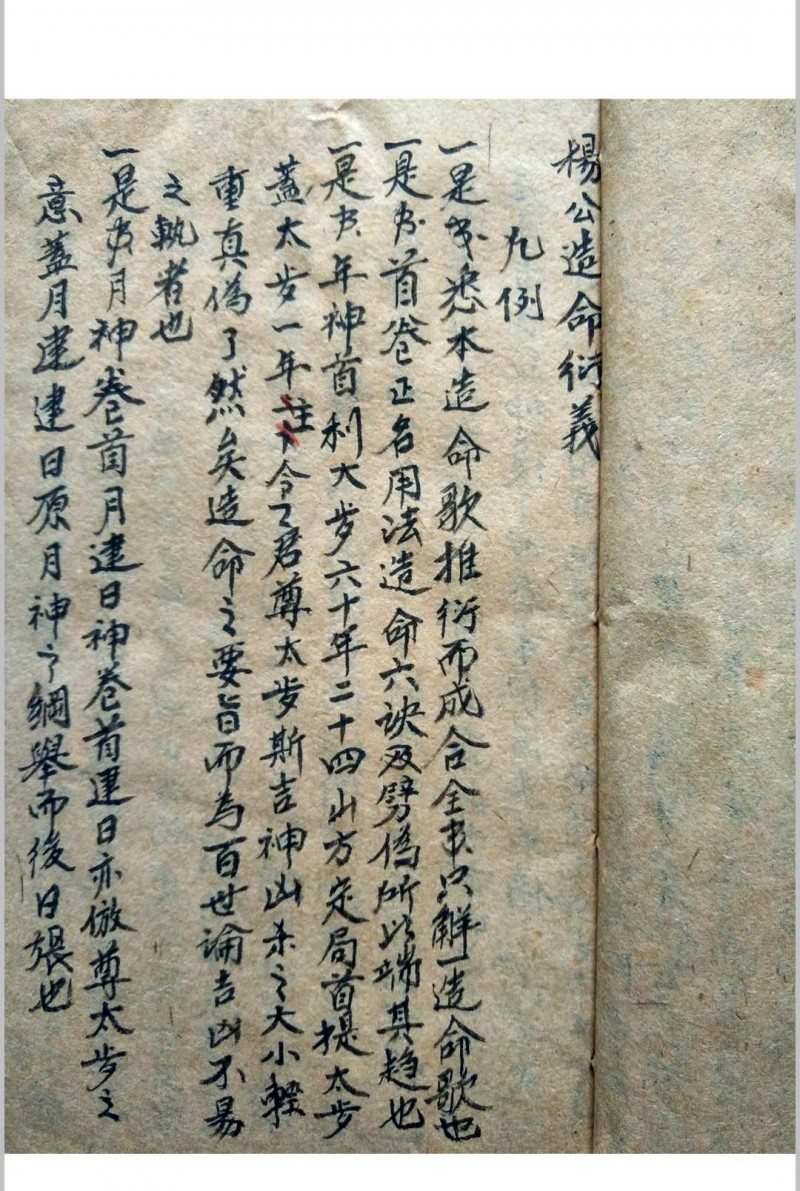 楊公造命衍義
凡例
一是书悉本造命歌推衍而成合全书只解一造命歌也
一是书首卷正名用法造命六诀及劈偽所以端其趋也
一是书年神首列太步六十年二十四山方定局首提太步
蓋太步一年主令之君尊太步斯吉神凶杀之大小輕
重真偽了然矣造命之要旨而為百世論吉凶不易
之執者也
一是书月神卷首月建日神卷首建日亦倣尊太步之
意蓋月建建日原月神之綱舉而後日張也